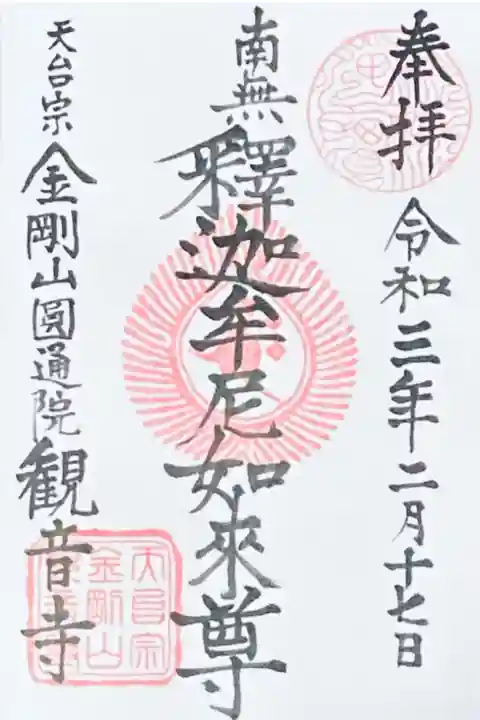 奉拝
令和三年二月十七日
南無
釋迦牟尼如來尊
天台宗
金剛山圓通院
観音寺
天台宗
金剛山